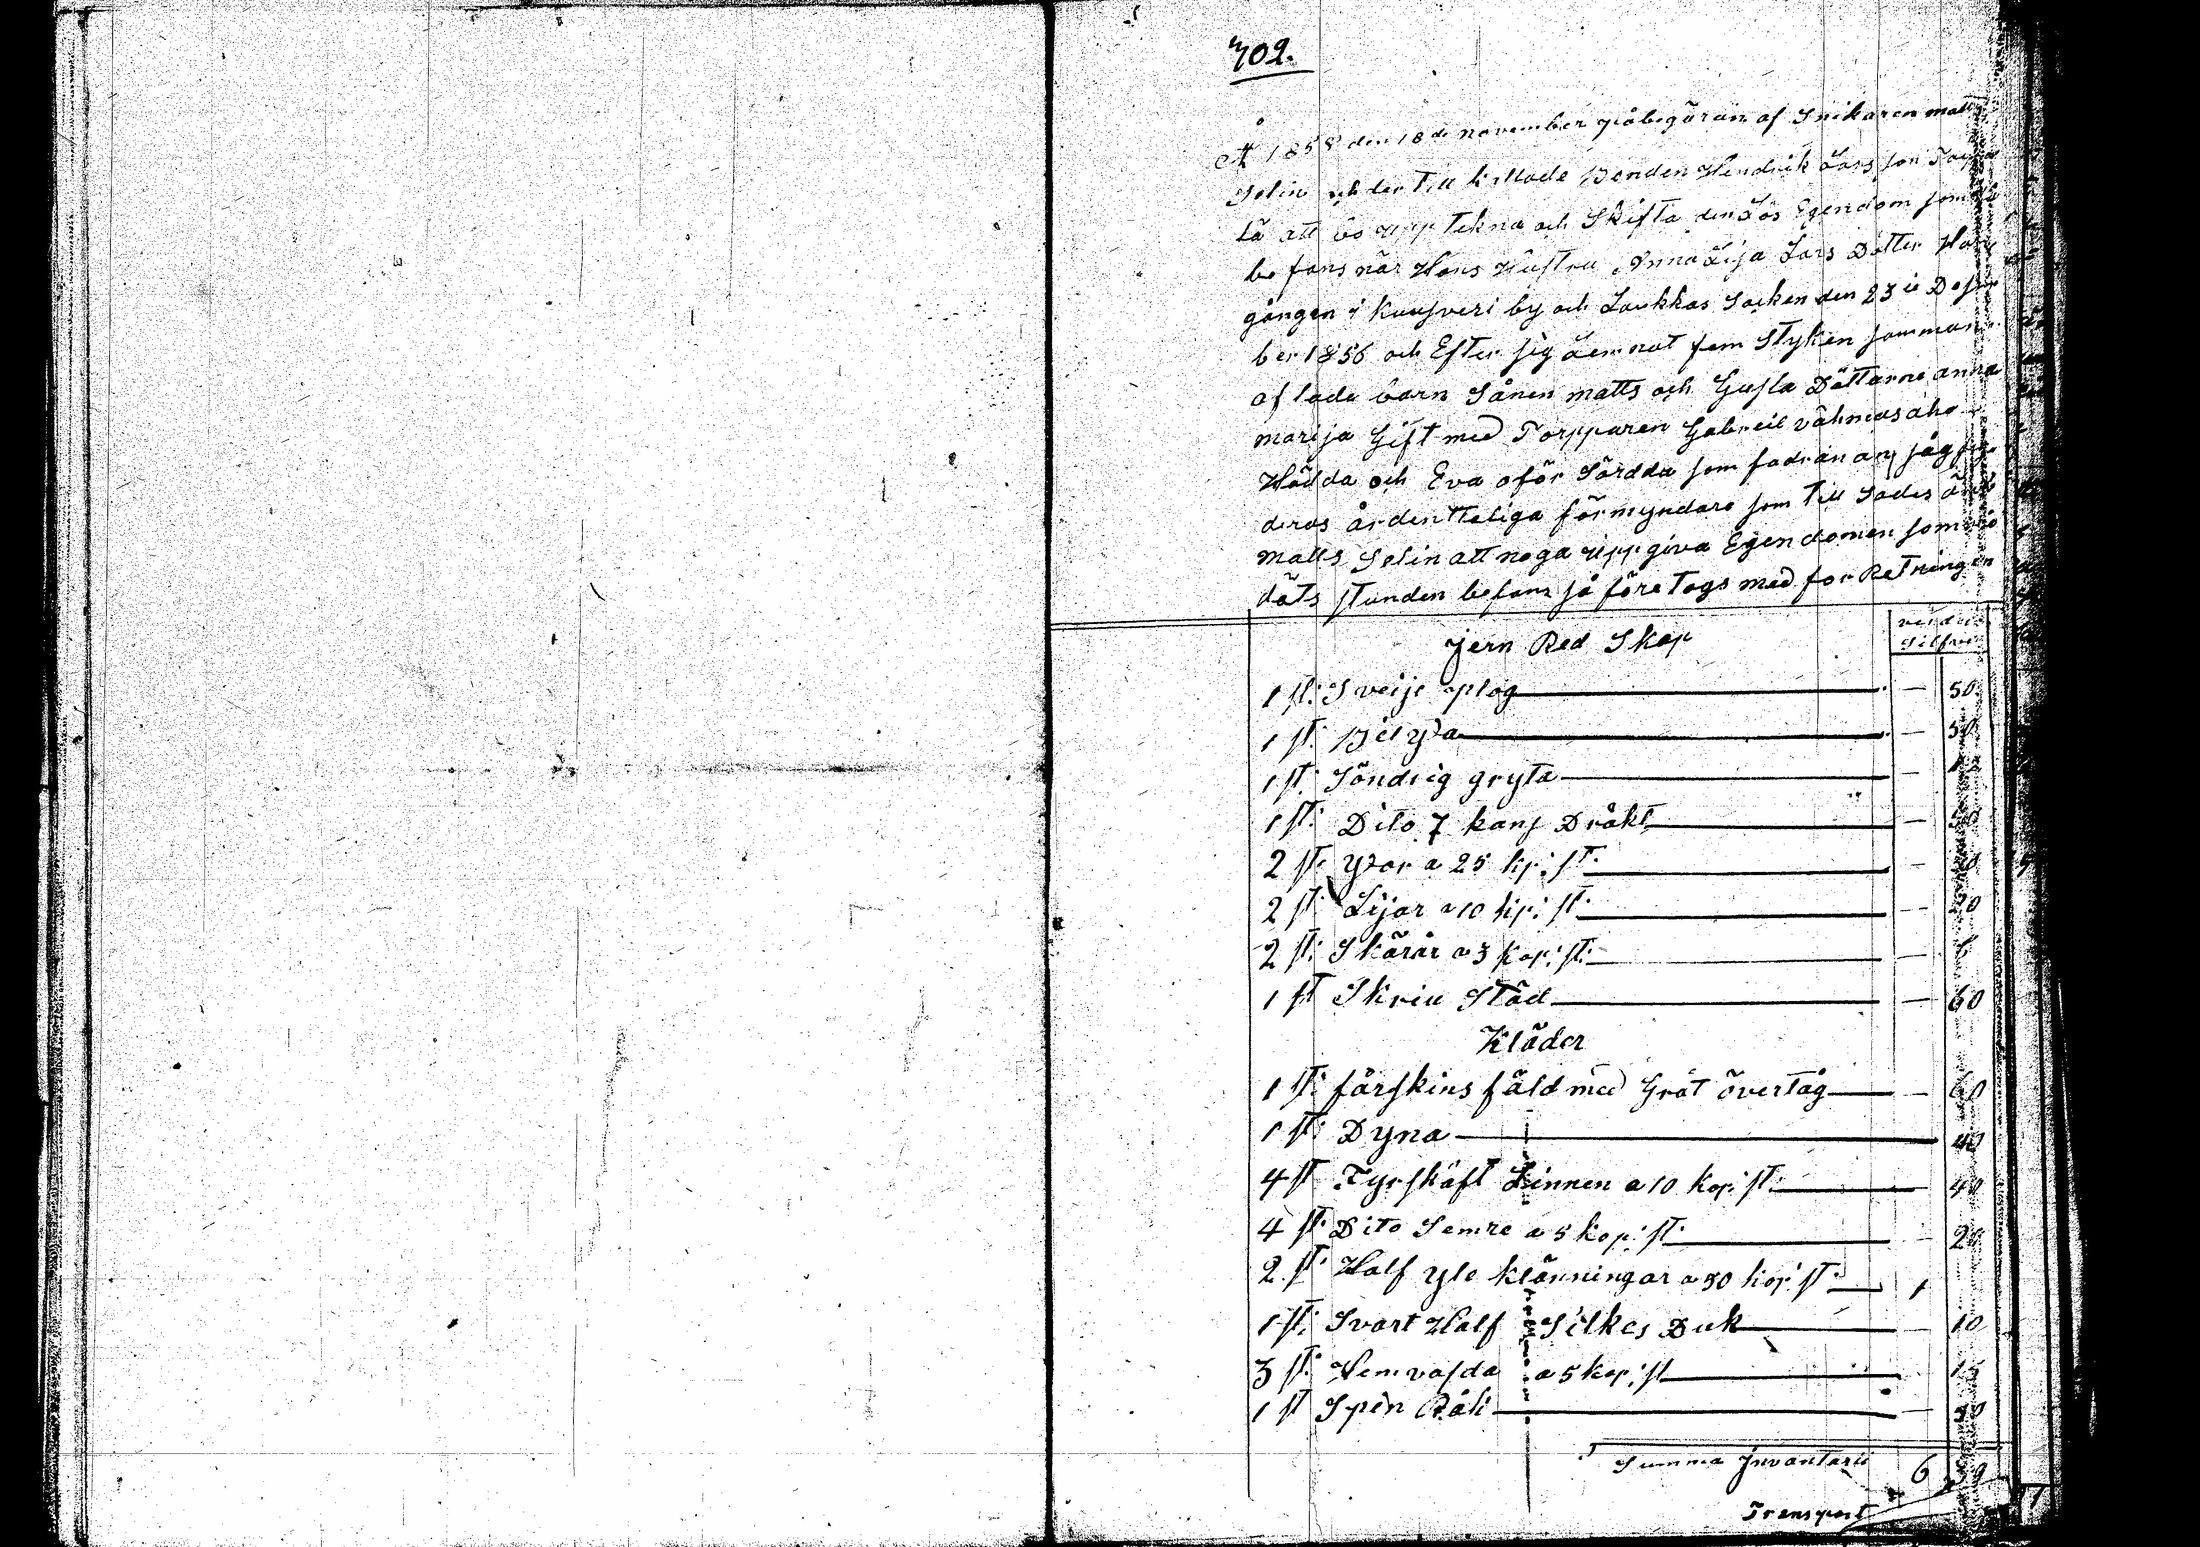 702.
År 1858 den 18de november på begäran af Snikaren matts
Selin och der Till kallade Bonden Hendrik Lars son
Lä att bo upp tekna och Skifta den Lös Egendom som
be fans när Hans Hustru Anna Lisa Lars Dotter
gången i Kuusveri by och Laukkas Socken den 23 i
ber 1856 och Efter sig Lemnat fem Styken samman
aflade barn Sånen matts och Gusta Döttarne anna
marija Gift med Torpparen Gabreil vähmasaho
Hädda och Eva oför Sördda som fadran
deras årdentteliga förmyndare som Till Sades
matts Selin att noga uppgiva Egendomen som
döts stunden befans så före Togs med for Retningen
jern Red Skap
värde i Silfver
1 st: Sveije plog — 50
1 st: Bilyxa — 30
1 st: Söndrig gryta
1 st: Dito 7 kans Dräkt
2 st: yxor a 25 kp: st: — 50
2 st: Lijar a 10 kp: st: — 20
2 st: Skärår a 3 kop: st: — 6
1 st Skriu Städ — 60
Kläder
1 st: fårskins fäld med Gråt övertåg — 60
1 st: Dyna — 40
4 st Fyrskäft Linnen a 10 kop: st: — 40
4 st: Dito Semre a 5 kop: st: — 20
2 st: Half yle klänningar a 50 kop: st: — 1
1 st: Svart Half Silkes Duk — 10
3 st: a 5 kop: st — 15
1 st Spen Råk
Summa Invantarie 6 39
Transport